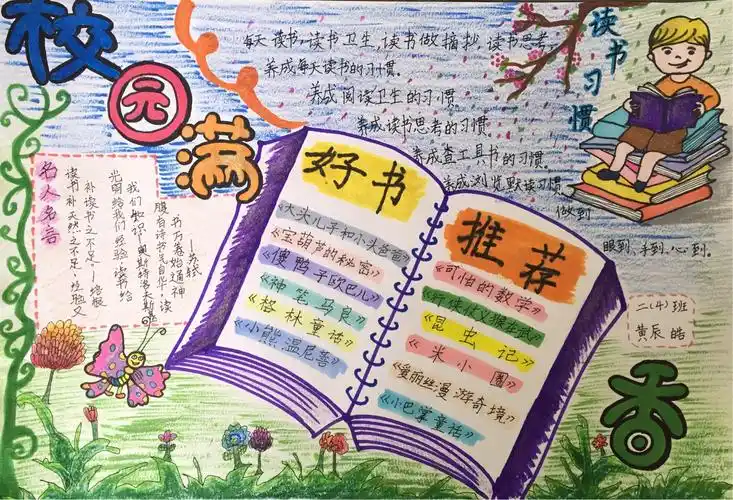 校
园
满
香
每天读书,读书卫生,读书做摘抄,读书思考。
养成每天读书的习惯。
养成阅读卫生的习惯。
养成读书思考的习惯
养成查工具书的习惯。
养成浏览默读习惯,
做到
眼到、手到、心到。
读书习惯
名人名言
读书补天然之不足,经验又
补读书之不足——培根
光明给我们经验,读书给
我们知识——奥斯特洛夫斯基
腹有诗书气自华,读
书万卷始通神
——苏轼
好书
《大头儿子和小头爸爸》
《宝葫芦的秘密》
《傻鸭子欧巴儿》
《神笔马良》
《格林童话》
《小熊温尼普》
推荐
《可怕的数学》
《昆虫记》
《米小圈》
《爱丽丝漫游奇境》
《小巴掌童话》
二(4)班
黄辰皓